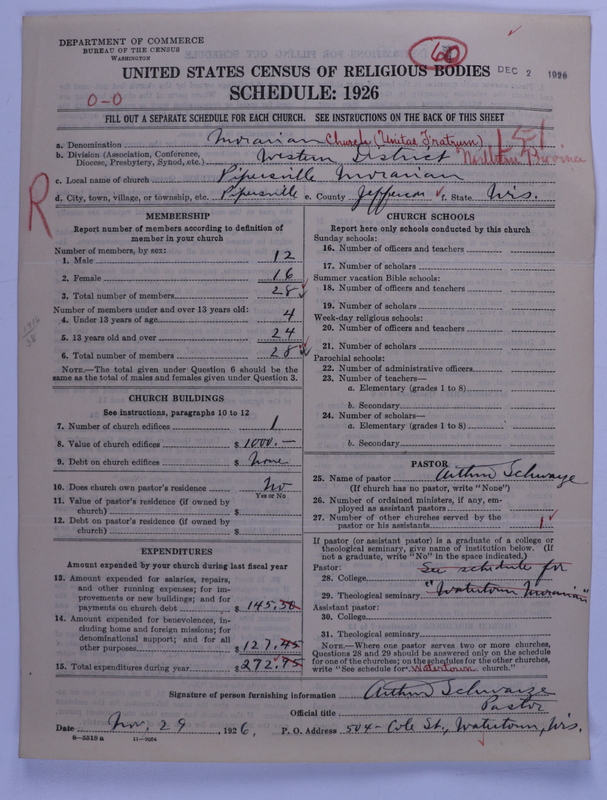 DEPARTMENT OF COMMERCE
BUREAU OF THE CENSUS
WASHINGTON
60
DEC 2 1926
UNITED STATES CENSUS OF RELIGIOUS BODIES
SCHEDULE: 1926
0-0
FILL OUT A SEPARATE SCHEDULE FOR EACH CHURCH. SEE INSTRUCTIONS ON THE BACK OF THIS SHEET
151
a. Denomination Moravian Church (Unitas Fratrum)
b. Division (Association, Conference, Diocese, Presbytery, Synod, etc.) Western District Northern Province
c. Local name of church Pipersville Moravian
d. City, town, village, or township, etc. Pipersville e. County Jefferson f. State Wis.
R
MEMBERSHIP
Report number of members according to definition of member in your church
Number of members, by sex:
1. Male 12
2. Female 16
3. Total number of members 28
Number of members under and over 13 years old:
4. Under 13 years of age 4
5. 13 years old and over 24
6. Total number of members 28
NOTE.—The total given under Question 6 should be the same as the total of males and females given under Question 3.
CHURCH BUILDINGS
See instructions, paragraphs 10 to 12
7. Number of church edifices 1
8. Value of church edifices $ 1000.—
9. Debt on church edifices $ None
10. Does church own pastor's residence No
Yes or No
11. Value of pastor's residence (if owned by church) $
12. Debt on pastor's residence (if owned by church) $
EXPENDITURES
Amount expended by your church during last fiscal year
13. Amount expended for salaries, repairs, and other running expenses; for improvements or new buildings; and for payments on church debt $ 145.30
14. Amount expended for benevolences, including home and foreign missions; for denominational support; and for all other purposes $ 127.45
15. Total expenditures during year $ 272.75
CHURCH SCHOOLS
Report here only schools conducted by this church
Sunday schools:
16. Number of officers and teachers
17. Number of scholars
Summer vacation Bible schools:
18. Number of officers and teachers
19. Number of scholars
Week-day religious schools:
20. Number of officers and teachers
21. Number of scholars
Parochial schools:
22. Number of administrative officers
23. Number of teachers—
a. Elementary (grades 1 to 8)
b. Secondary
24. Number of scholars—
a. Elementary (grades 1 to 8)
b. Secondary
PASTOR
25. Name of pastor Arthur Schwarze
(If church has no pastor, write "None")
26. Number of ordained ministers, if any, employed as assistant pastors
27. Number of other churches served by the pastor or his assistants 1
If pastor (or assistant pastor) is a graduate of a college or theological seminary, give name of institution below. (If not a graduate, write "No" in the space indicated.)
Pastor:
28. College See schedule for
29. Theological seminary "Watertown Moravian"
Assistant pastor:
30. College
31. Theological seminary
NOTE.—Where one pastor serves two or more churches, Questions 28 and 29 should be answered only on the schedule for one of the churches; on the schedules for the other churches, write "See schedule for Watertown church."
Signature of person furnishing information Arthur Schwarze
Official title Pastor
Date Nov. 29, 1926. P. O. Address 504 - Cole St., Watertown, Wis.
8-5518 a 11-9024